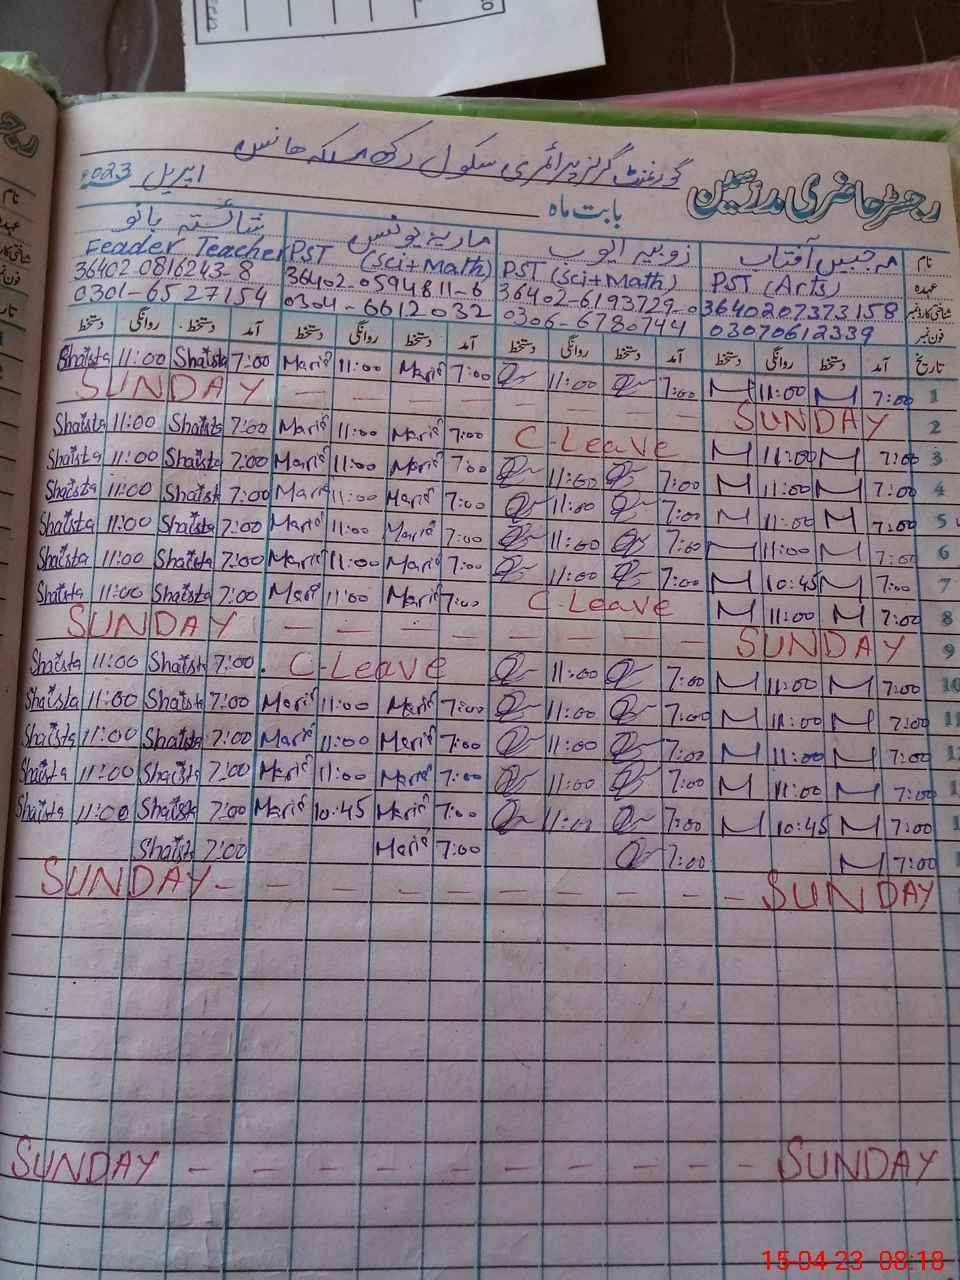 رجسٹر حاضری مدرسین
گورنمنٹ گرلز پرائمری سکول رکھ مسکہ ھانس
بابت ماہ اپریل 2023
نام مہ جبیں آفتاب زوبیہ ایوب ماریہ یونس شائستہ بانو
عہدہ PST (Arts) PST (Sci+Math) PST (Sci+Math) Feader Teacher
شناختی کارڈ نمبر 3640207373158 36402-6193729-0 36402-0594811-6 36402-0816243-8
فون نمبر 03070612339 0306-6780744 0304-6612032 0301-6527154
تاریخ آمد دستخط روانگی دستخط آمد دستخط روانگی دستخط آمد دستخط روانگی دستخط آمد دستخط روانگی دستخط
Shaista 11:00 Shaista 7:00 Maria 11:00 Maria 7:00 11:00 7:00 M 11:00 M 7:00 1
SUNDAY - - - - - - - - SUNDAY 2
Shaista 11:00 Shaista 7:00 Maria 11:00 Maria 7:00 C-Leave M 11:00 M 7:00 3
Shaista 11:00 Shaista 7:00 Maria 11:00 Maria 7:00 11:00 7:00 M 11:00 M 7:00 4
Shaista 11:00 Shaista 7:00 Maria 11:00 Maria 7:00 11:00 7:00 M 11:00 M 7:00 5
Shaista 11:00 Shaista 7:00 Maria 11:00 Maria 7:00 11:00 7:00 M 11:00 M 7:00 6
Shaista 11:00 Shaista 7:00 Maria 11:00 Maria 7:00 11:00 7:00 M 10:45 M 7:00 7
Shaista 11:00 Shaista 7:00 Maria 11:00 Maria 7:00 C-Leave M 11:00 M 7:00 8
SUNDAY - - - - - - - - SUNDAY 9
Shaista 11:00 Shaista 7:00 C-Leave 11:00 7:00 M 11:00 M 7:00 10
Shaista 11:00 Shaista 7:00 Maria 11:00 Maria 7:00 11:00 7:00 M 11:00 M 7:00
Shaista 11:00 Shaista 7:00 Maria 11:00 Maria 7:00 11:00 7:00 M 11:00 M 7:00
Shaista 11:00 Shaista 7:00 Maria 11:00 Maria 7:00 11:00 7:00 M 11:00 M 7:00
Shaista 11:00 Shaista 7:00 Maria 10:45 Maria 7:00 11:00 7:00 M 10:45 M 7:00
Shaista 7:00 Maria 7:00 7:00 M 7:00
SUNDAY - - - - - - - - - SUNDAY
SUNDAY - - - - - - - - - SUNDAY
15-04-23 08:18